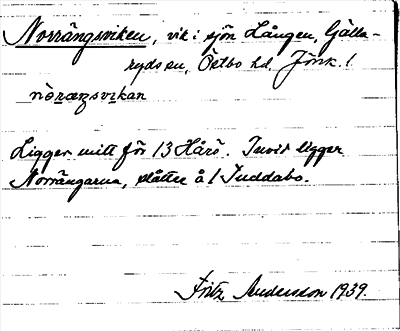 Norrängsviken, vik i sjön Lången, Gjälla-
ryds sn, Östbo hd. Jönk. l.
nòrængsvikan
Ligger mitt för 13 Hårö. Invid ligger
Norrängarna, slåtter å 1 Juddabo.
Fritz Andersson 1939.